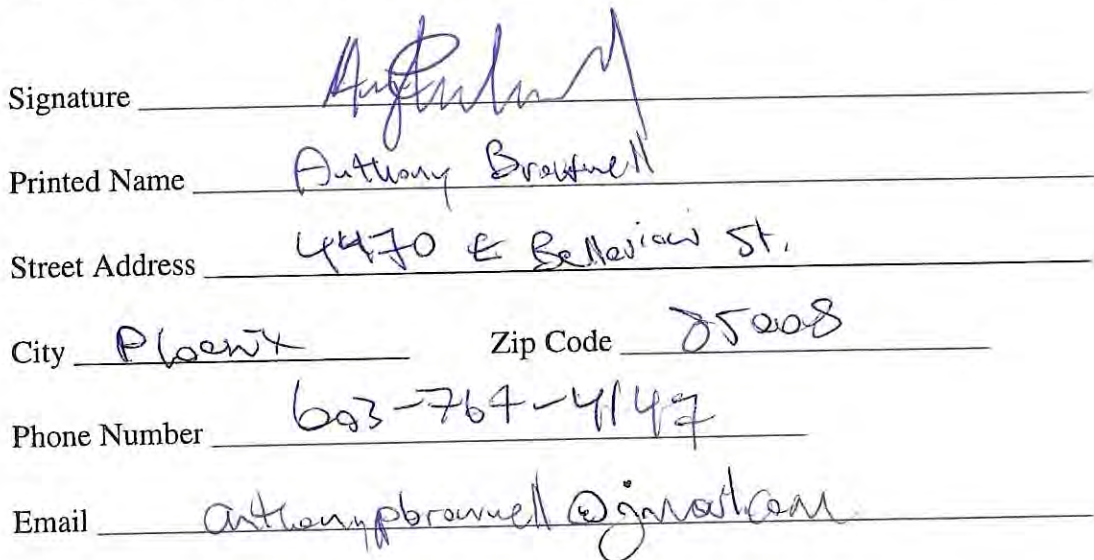 Signature
Printed Name Anthony Brownell
Street Address 4470 E Belleview St.
City Phoenix Zip Code 85008
Phone Number 603-764-4147
Email anthonypbrownell@gmail.com